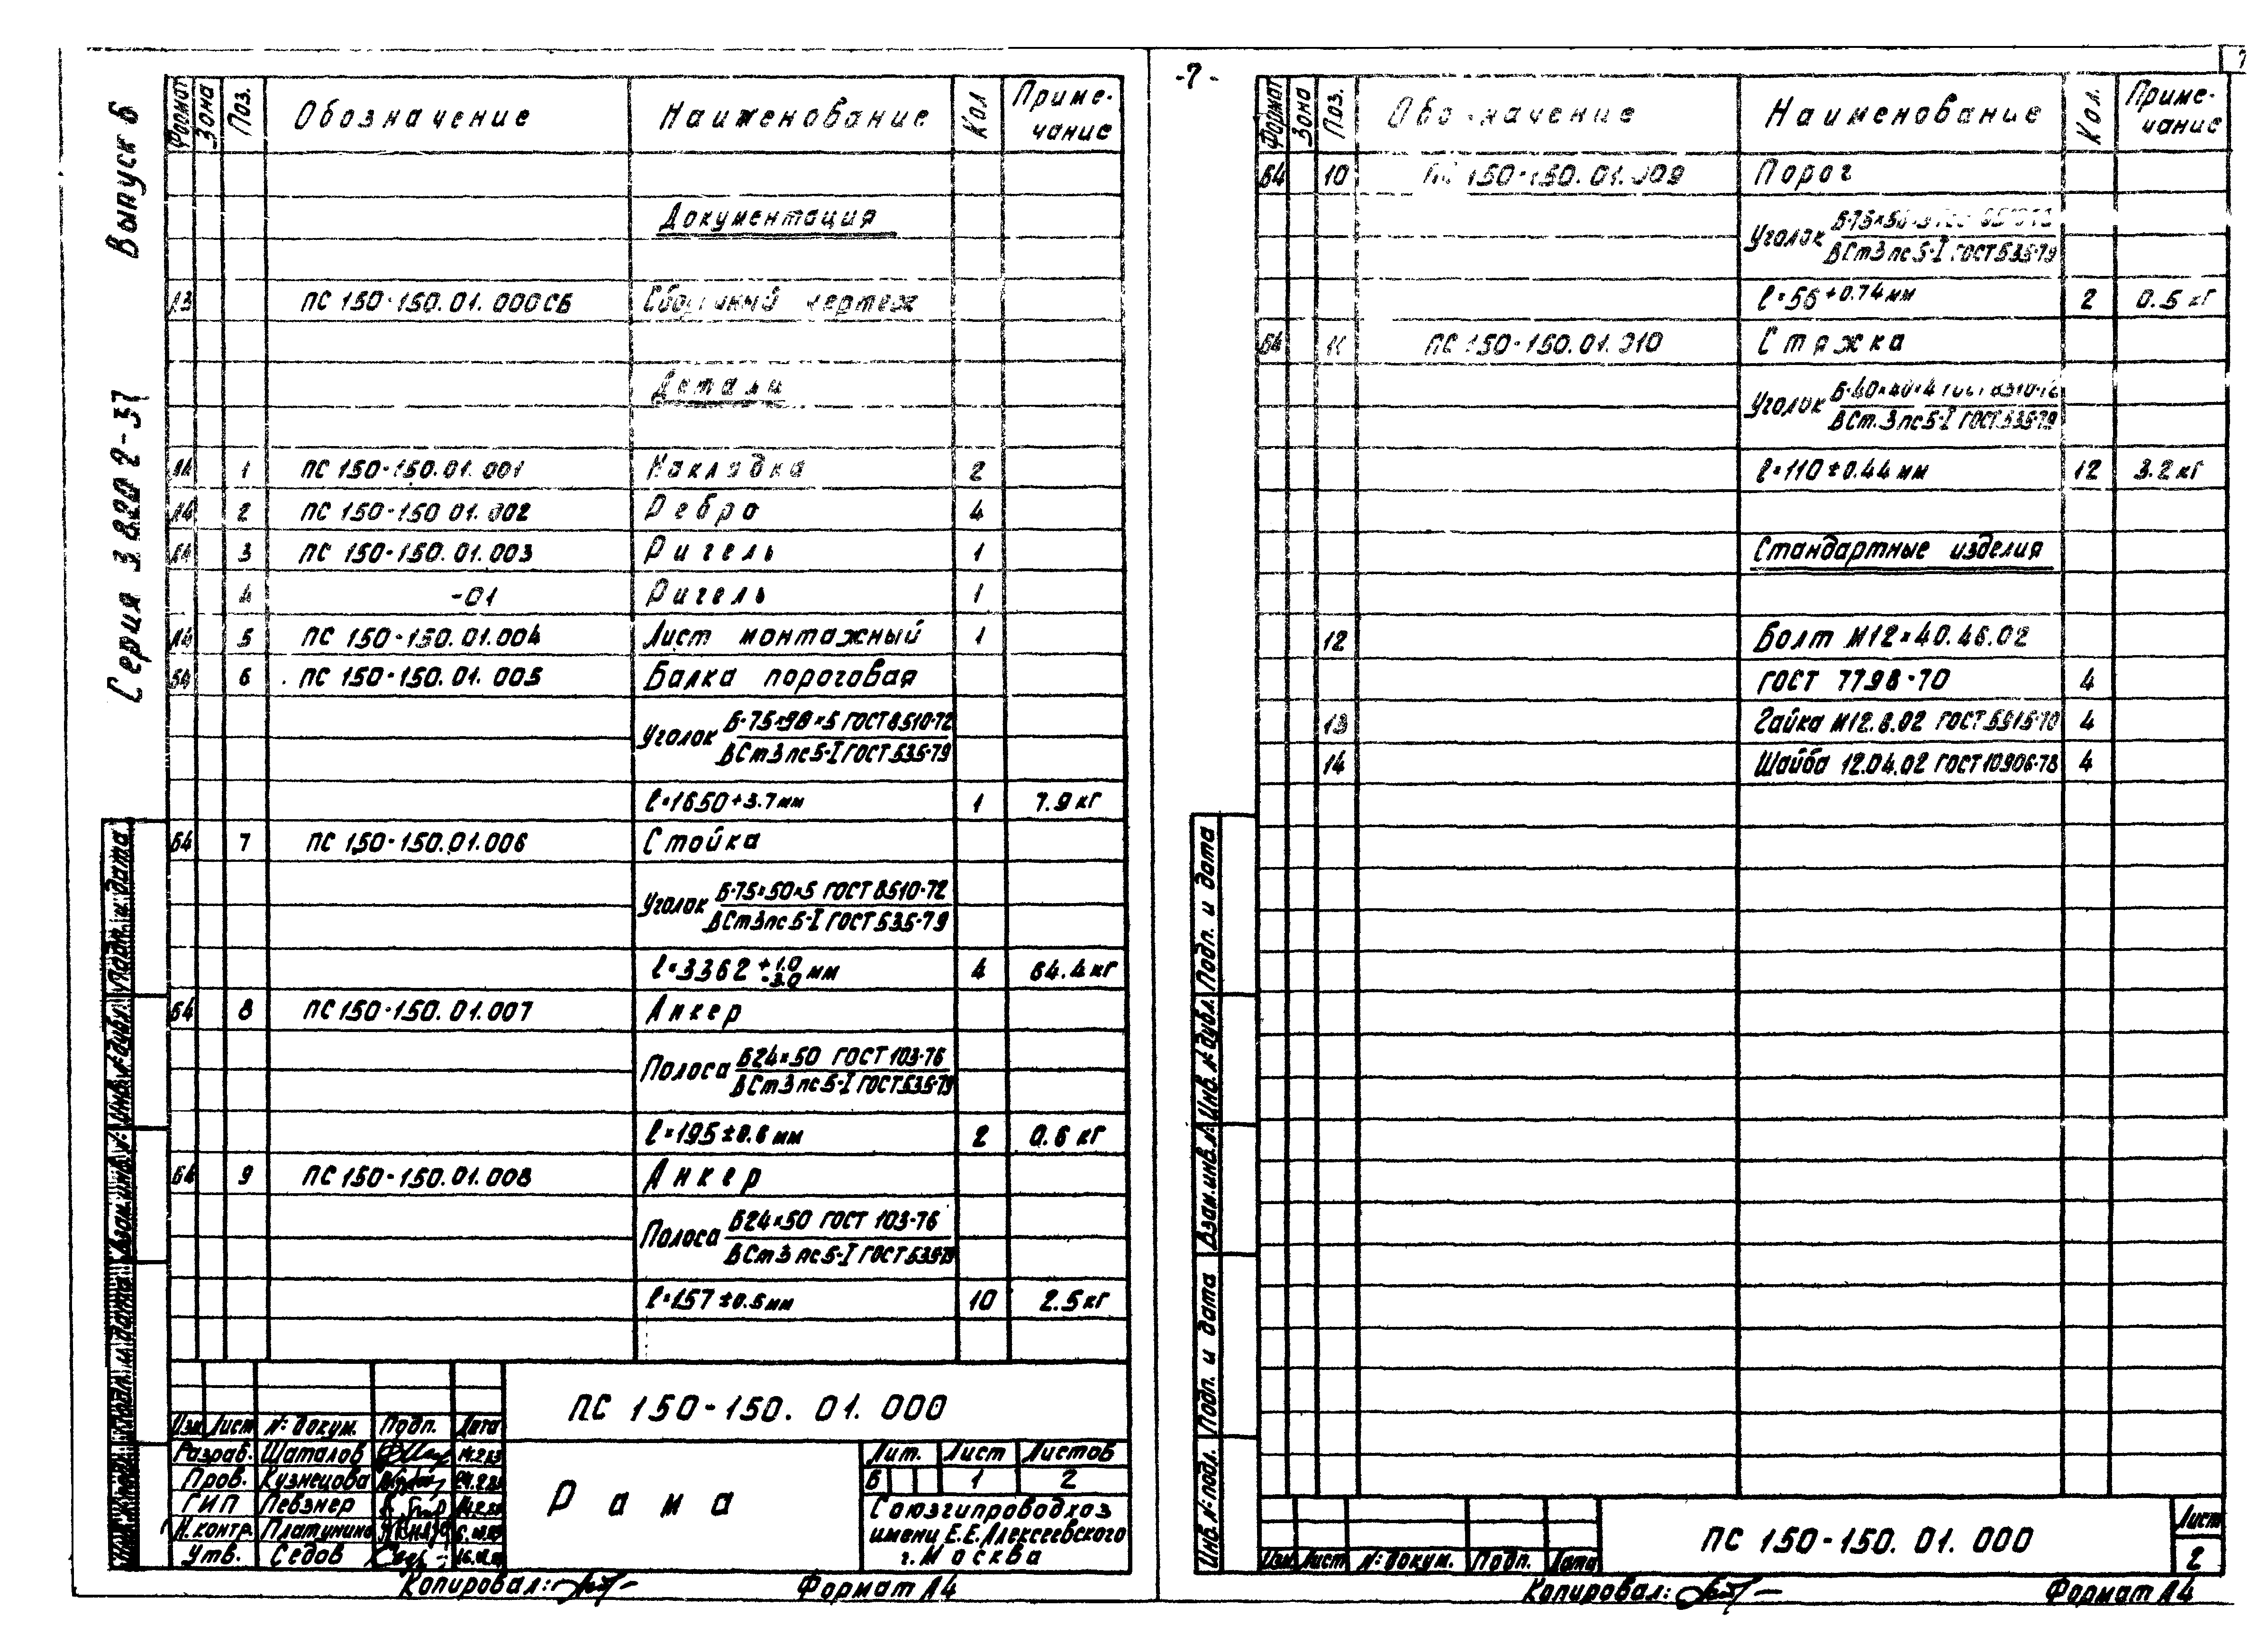 Серия 3.820.2-37 Выпуск 6
-7-
Формат Зона Поз. Обозначение Наименование Кол Приме-чание
Документация
А3 ПС 150-150.01.000СБ Сборочный чертеж
Детали
А4 1 ПС 150-150.01.001 Накладка 2
А4 2 ПС 150-150 01.002 Ребро 4
3 ПС 150-150.01.003 Ригель 1
4 -01 Ригель 1
А4 5 ПС 150-150.01.004 Лист монтажный 1
Б4 6 ПС 150-150.01.005 Балка пороговая
Уголок Б-75×90×5 ГОСТ 8510-72
ВСт3пс5-I ГОСТ 535-79
ℓ=1650+3.7мм 1 7.9 кг
Б4 7 ПС 150-150.01.006 Стойка
Уголок Б-75×50×5 ГОСТ 8510-72
ВСт3пс5-I ГОСТ 535-79
ℓ=3362 +1.0 -3.0 мм 4 64.4 кг
Б4 8 ПС 150-150.01.007 Анкер
Полоса Б24×50 ГОСТ 103-76
ВСт3пс5-I ГОСТ 535-79
ℓ=195±0.6 мм 2 0.6 кг
Б4 9 ПС 150-150.01.008 Анкер
Полоса Б24×50 ГОСТ 103-76
ВСт3пс5-I ГОСТ
ℓ=157±0.5мм 10 2.5кг
ПС 150-150.01.000
Изм Лист № докум. Подп. Дата
Разраб. Шаталов
Пров. Кузнецова
ГИП Певзнер
Н.контр. Платунина
Утв. Седов
Рама
Лит. Лист Листов
Б 1 2
Союзгипроводхоз
имени Е.Е.Алексеевского
г. Москва
Копировал: Формат А4
Формат Зона Поз. Обозначение Наименование Кол. Приме-чание
Б4 10 ПС 150-150.01.009 Порог
Уголок Б-75×50×5
ВСт3пс5-I ГОСТ 535-79
ℓ=56+0.74мм 2 0.5 кг
Б4 11 ПС 150-150.01.010 Стяжка
Уголок Б-40×40×4 ГОСТ 8510-72
ВСт.3пс5-I ГОСТ 535-79
ℓ=110±0.44 мм 12 3.2 кг
Стандартные изделия
12 Болт М12×40.46.02
ГОСТ 7798-70 4
13 Гайка М12.8.02 ГОСТ 5915-70 4
14 Шайба 12.04.02 ГОСТ 10906-78 4
Инв. № подл. Подп. и дата Взам.инв.№ Инв.№ дубл. Подп. и дата
Изм Лист № докум. Подп. Дата
ПС 150-150.01.000
Лист
2
Копировал: Формат А4